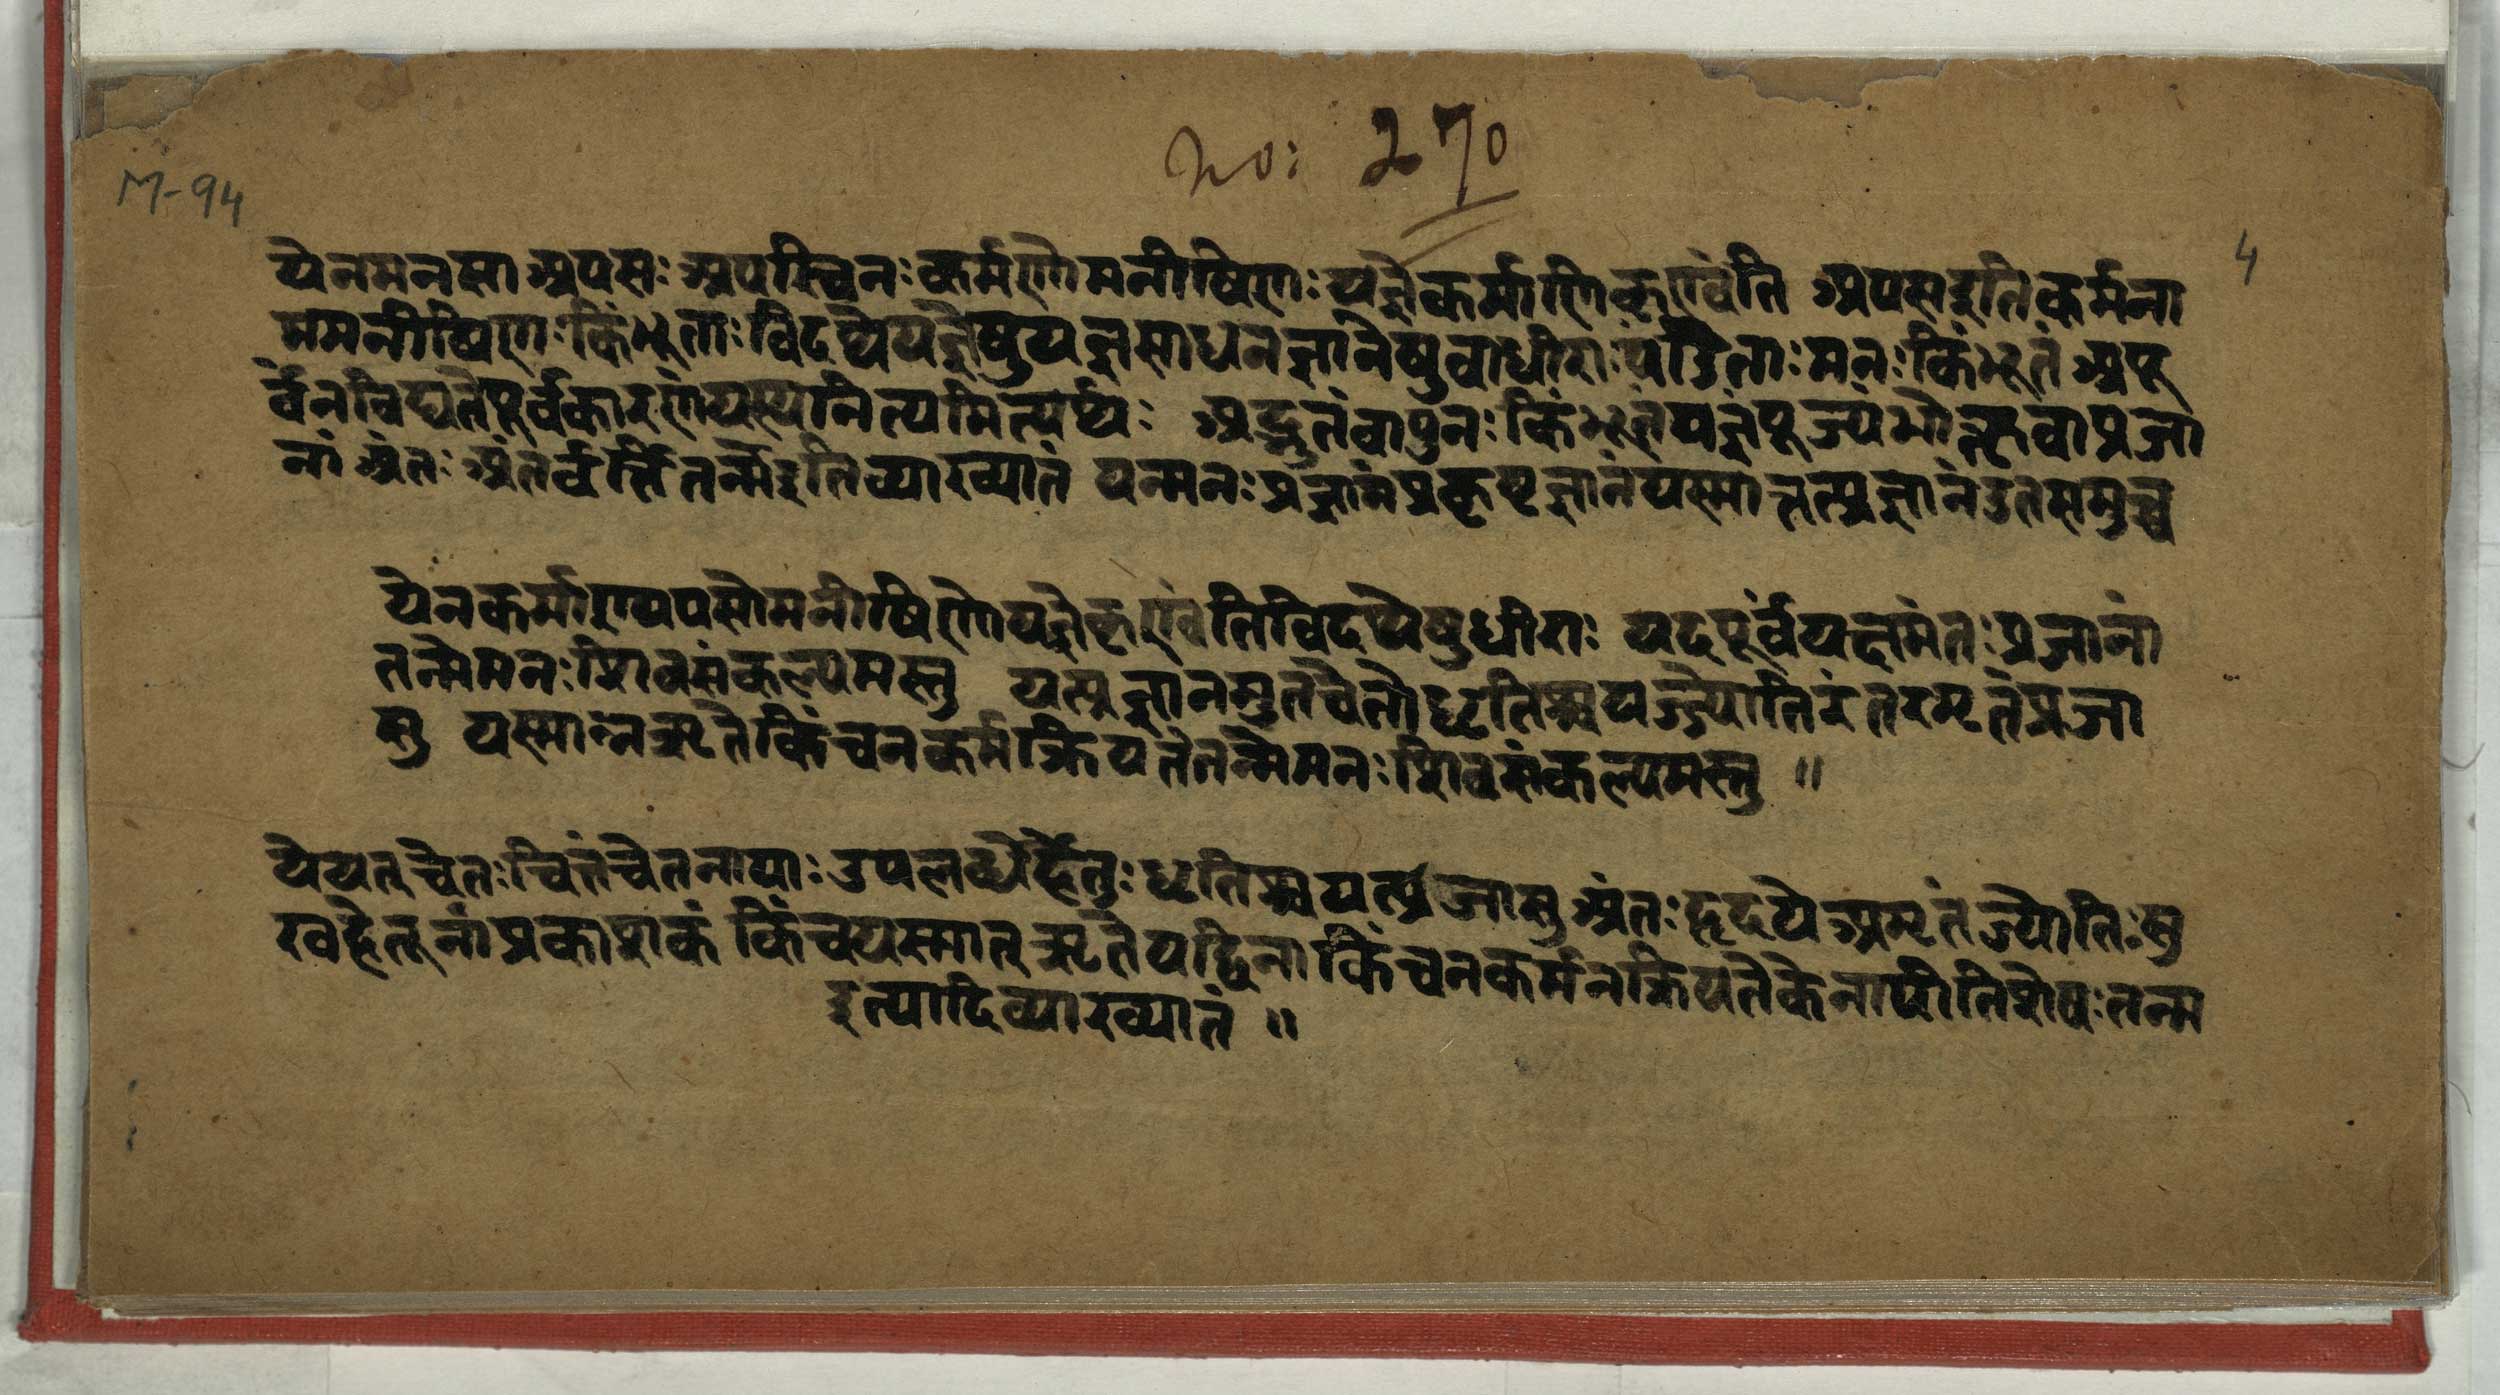 no: 270
M-94
4
येनमनसा अपसः अपस्विनः कर्मणोमनीषिणः यज्ञेकर्माणिकृण्वंति अपसइतिकर्मना
ममनीषिणः किंभूताः विदथेयज्ञेषुयज्ञसाधनज्ञानेषुवाधीराः पंडिताः मनः किंभूतं अपू
र्वंनविद्यतेपूर्वकारणंयस्यनित्यमित्यर्थः अद्भुतंवापुनः किंभूतंयज्ञंपूज्यंभोक्तृवाप्रजा
नां अंतः अंतर्वर्त्तितन्मेइतिव्याख्यातं यन्मनः प्रज्ञानंप्रकृष्टज्ञानंयस्मात्तत्प्रज्ञानंउतसमुच्च
येनकर्माण्यपसोमनीषिणोयज्ञेकृण्वंतिविदथेषुधीराः यदपूर्वंयक्षमंतः प्रजानां
तन्मेमनः शिवसंकल्पमस्तु यत्प्रज्ञानमुतचेतोधृतिश्चयज्ज्योतिरंतरमृतंप्रजा
सु यस्मान्नऋतेकिंचनकर्मक्रियतेतन्मेमनः शिवसंकल्पमस्तु ॥
येयत् चेतः चित्तंचेतनायाः उपलब्धेर्हेतुः धृतिश्चयत्प्रजासु अंतः हृदये अमृतं ज्योतिः सु
खहेतूनांप्रकाशकं किंचयस्मात् ऋतेयद्विनाकिंचनकर्मनक्रियतेकेनापीतिशेषः तन्म
इत्यादिव्याख्यातं ॥